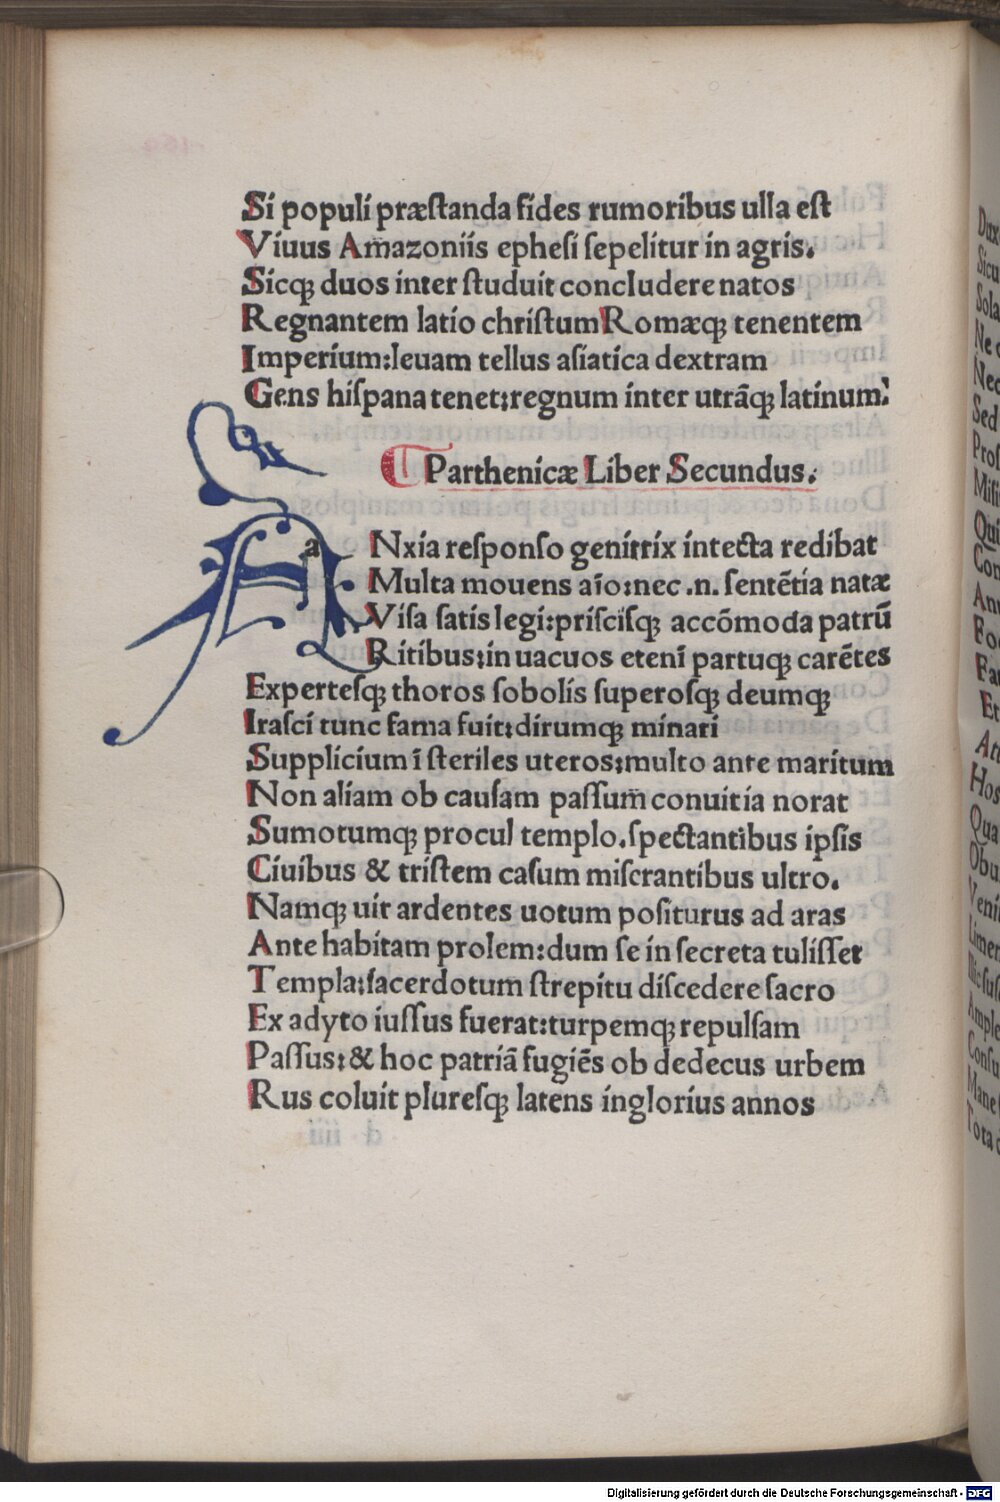 Si populi præſtanda fides rumoribus ulla eſt
Viuus Am̄azoniis epheſi ſepelitur in agris.
Sicqꝫ duos inter ſtuduit concludere natos
Regnantem latio chriſtum Romæqꝫ tenentem
Imperium:leuam tellus aſiatica dextram
Gens hiſpana tenet:regnum inter utrāqꝫ latinum.
Parthenicæ Liber Secundus.
aNxia reſponſo genitrix intecta redibat
Multa mouens aīo:nec .n. ſentētia natæ
Viſa ſatis legi:priſciſqꝫ accōmoda patrū
Ritibus:in uacuos etenī partuqꝫ carētes
Experteſqꝫ thoros ſobolis ſuperoſqꝫ deumqꝫ
Iraſci tunc fama fuit:dirumqꝫ minari
Supplicium ī ſteriles uteros:multo ante maritum
Non aliam ob cauſam paſſum̄ conuitia norat
Sumotumqꝫ procul templo.ſpectantibus ipſis
Ciuibus & triſtem caſum miſerantibus ultro.
Namqꝫ uir ardentes uotum poſiturus ad aras
Ante habitam prolem:dum ſe in ſecreta tuliſſet
Templa:ſacerdotum ſtrepitu diſcedere ſacro
Ex adyto iuſſus fuerat:turpemqꝫ repulſam
Paſſus:& hoc patriā fugiēs ob dedecus urbem
Rus coluit plureſqꝫ latens inglorius annos
Digitalisierung gefördert durch die Deutsche Forschungsgemeinschaft - DFG